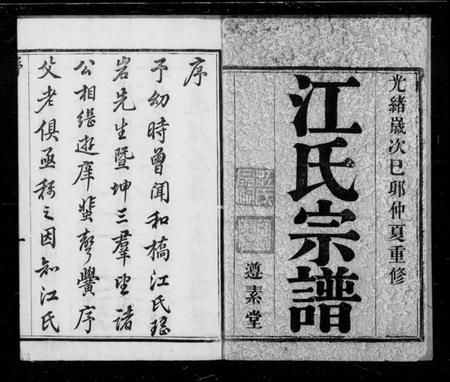 光緒歲次己卯仲夏重修
江氏宗譜
遵素堂
序
予幼時曾聞和橋江氏瑶
岩先生暨坤三羣玉諸
公相繼遊庠蜚聲黌序
父老俱亟稱之因知江氏